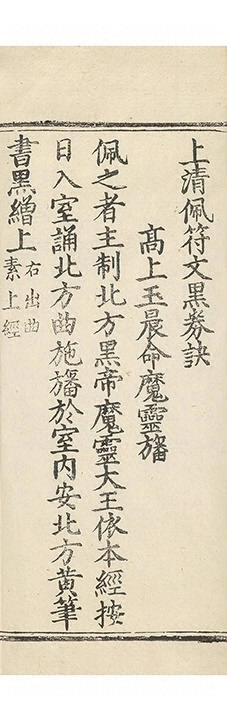 上清佩符文黑券訣
髙上玉晨命魔靈旛
佩之者主制北方黑帝魔靈大王依本經按
日入室誦北方曲施旛於室内安北方黄筆
書黑繒上右出曲
素上經